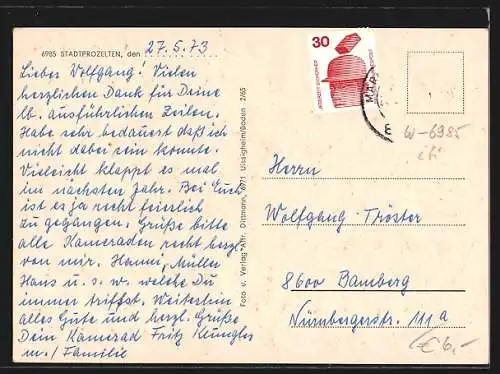 6985 STADTPROZELTEN, den 27.5.73
Lieber Wolfgang! Vielen
herzlichen Dank für Deine
lb. ausführlichen Zeilen.
Habe sehr bedauert daß ich
nicht dabei sein konnte.
Vieleicht klappt es mal
im nächsten Jahr. Bei Euch
ist es ja recht feierlich
zu gegangen. Grüße bitte
alle Kameraden recht herzl.
von mir. Hanni, Müller
Hans u. s. w. welche Du
immer triffst. Weiterhin
alles Gute und herzl. Grüße
Dein Kamerad Fritz
m./ Familie
Foto u. Verlag Alfr. Dittmann, 6971 Uissigheim/Baden 2/65
30
JEDERZEIT SICHERHEIT
MAR
W-6985
Herrn
Wolfgang Tröster
8600 Bamberg
Nürnbergerstr. 111a
€ 6,-